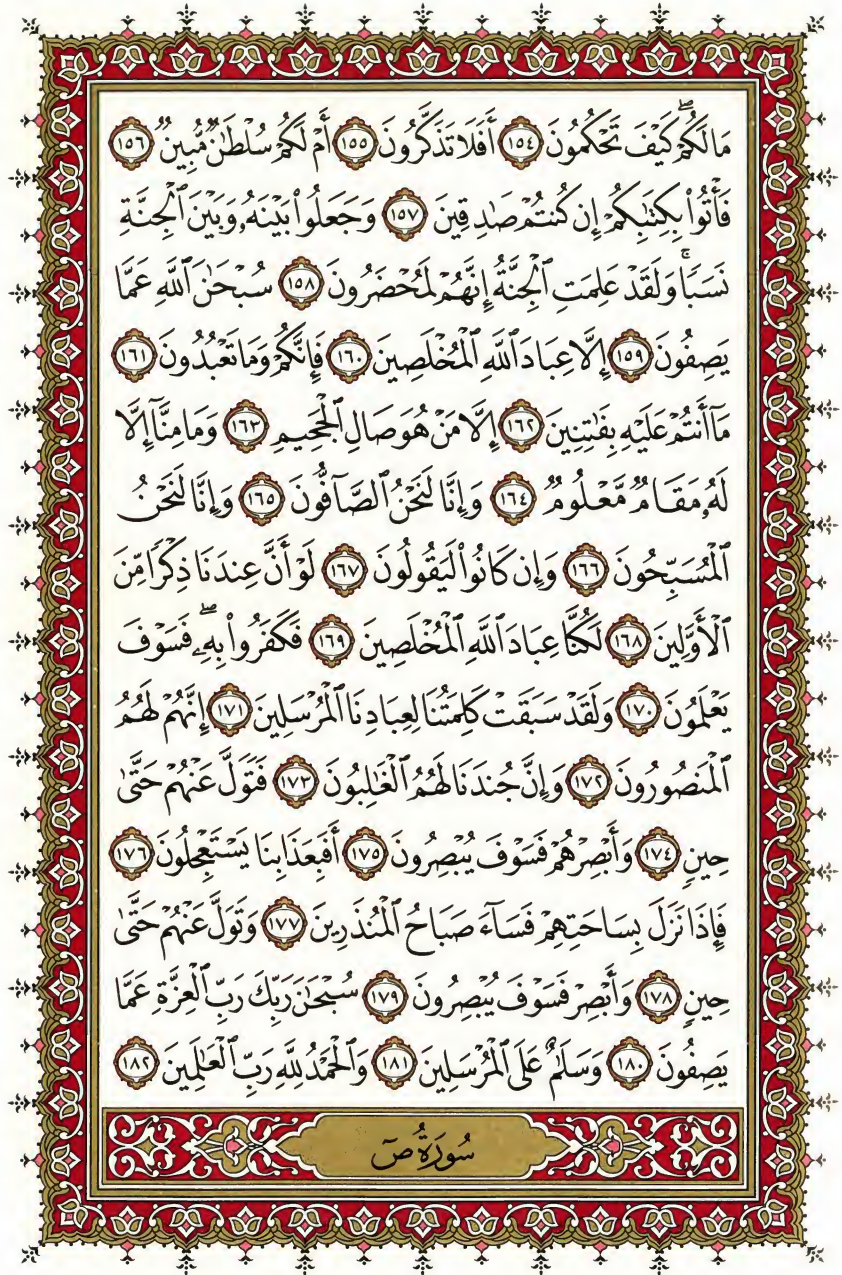 مَا لَكُمْ كَيْفَ تَحْكُمُونَ ١٥٤ أَفَلَا تَذَكَّرُونَ ١٥٥ أَمْ لَكُمْ سُلْطَٰنٌ مُّبِينٌ ١٥٦
فَأْتُوا۟ بِكِتَٰبِكُمْ إِن كُنتُمْ صَٰدِقِينَ ١٥٧ وَجَعَلُوا۟ بَيْنَهُۥ وَبَيْنَ ٱلْجِنَّةِ
نَسَبًا ۚ وَلَقَدْ عَلِمَتِ ٱلْجِنَّةُ إِنَّهُمْ لَمُحْضَرُونَ ١٥٨ سُبْحَٰنَ ٱللَّهِ عَمَّا
يَصِفُونَ ١٥٩ إِلَّا عِبَادَ ٱللَّهِ ٱلْمُخْلَصِينَ ١٦٠ فَإِنَّكُمْ وَمَا تَعْبُدُونَ ١٦١
مَآ أَنتُمْ عَلَيْهِ بِفَٰتِنِينَ ١٦٢ إِلَّا مَنْ هُوَ صَالِ ٱلْجَحِيمِ ١٦٣ وَمَا مِنَّآ إِلَّا
لَهُۥ مَقَامٌ مَّعْلُومٌ ١٦٤ وَإِنَّا لَنَحْنُ ٱلصَّآفُّونَ ١٦٥ وَإِنَّا لَنَحْنُ
ٱلْمُسَبِّحُونَ ١٦٦ وَإِن كَانُوا۟ لَيَقُولُونَ ١٦٧ لَوْ أَنَّ عِندَنَا ذِكْرًا مِّنَ
ٱلْأَوَّلِينَ ١٦٨ لَكُنَّا عِبَادَ ٱللَّهِ ٱلْمُخْلَصِينَ ١٦٩ فَكَفَرُوا۟ بِهِۦ ۖ فَسَوْفَ
يَعْلَمُونَ ١٧٠ وَلَقَدْ سَبَقَتْ كَلِمَتُنَا لِعِبَادِنَا ٱلْمُرْسَلِينَ ١٧١ إِنَّهُمْ لَهُمُ
ٱلْمَنصُورُونَ ١٧٢ وَإِنَّ جُندَنَا لَهُمُ ٱلْغَٰلِبُونَ ١٧٣ فَتَوَلَّ عَنْهُمْ حَتَّىٰ
حِينٍ ١٧٤ وَأَبْصِرْهُمْ فَسَوْفَ يُبْصِرُونَ ١٧٥ أَفَبِعَذَابِنَا يَسْتَعْجِلُونَ ١٧٦
فَإِذَا نَزَلَ بِسَاحَتِهِمْ فَسَآءَ صَبَاحُ ٱلْمُنذَرِينَ ١٧٧ وَتَوَلَّ عَنْهُمْ حَتَّىٰ
حِينٍ ١٧٨ وَأَبْصِرْ فَسَوْفَ يُبْصِرُونَ ١٧٩ سُبْحَٰنَ رَبِّكَ رَبِّ ٱلْعِزَّةِ عَمَّا
يَصِفُونَ ١٨٠ وَسَلَٰمٌ عَلَى ٱلْمُرْسَلِينَ ١٨١ وَٱلْحَمْدُ لِلَّهِ رَبِّ ٱلْعَٰلَمِينَ ١٨٢
سُورَةُ صٓ